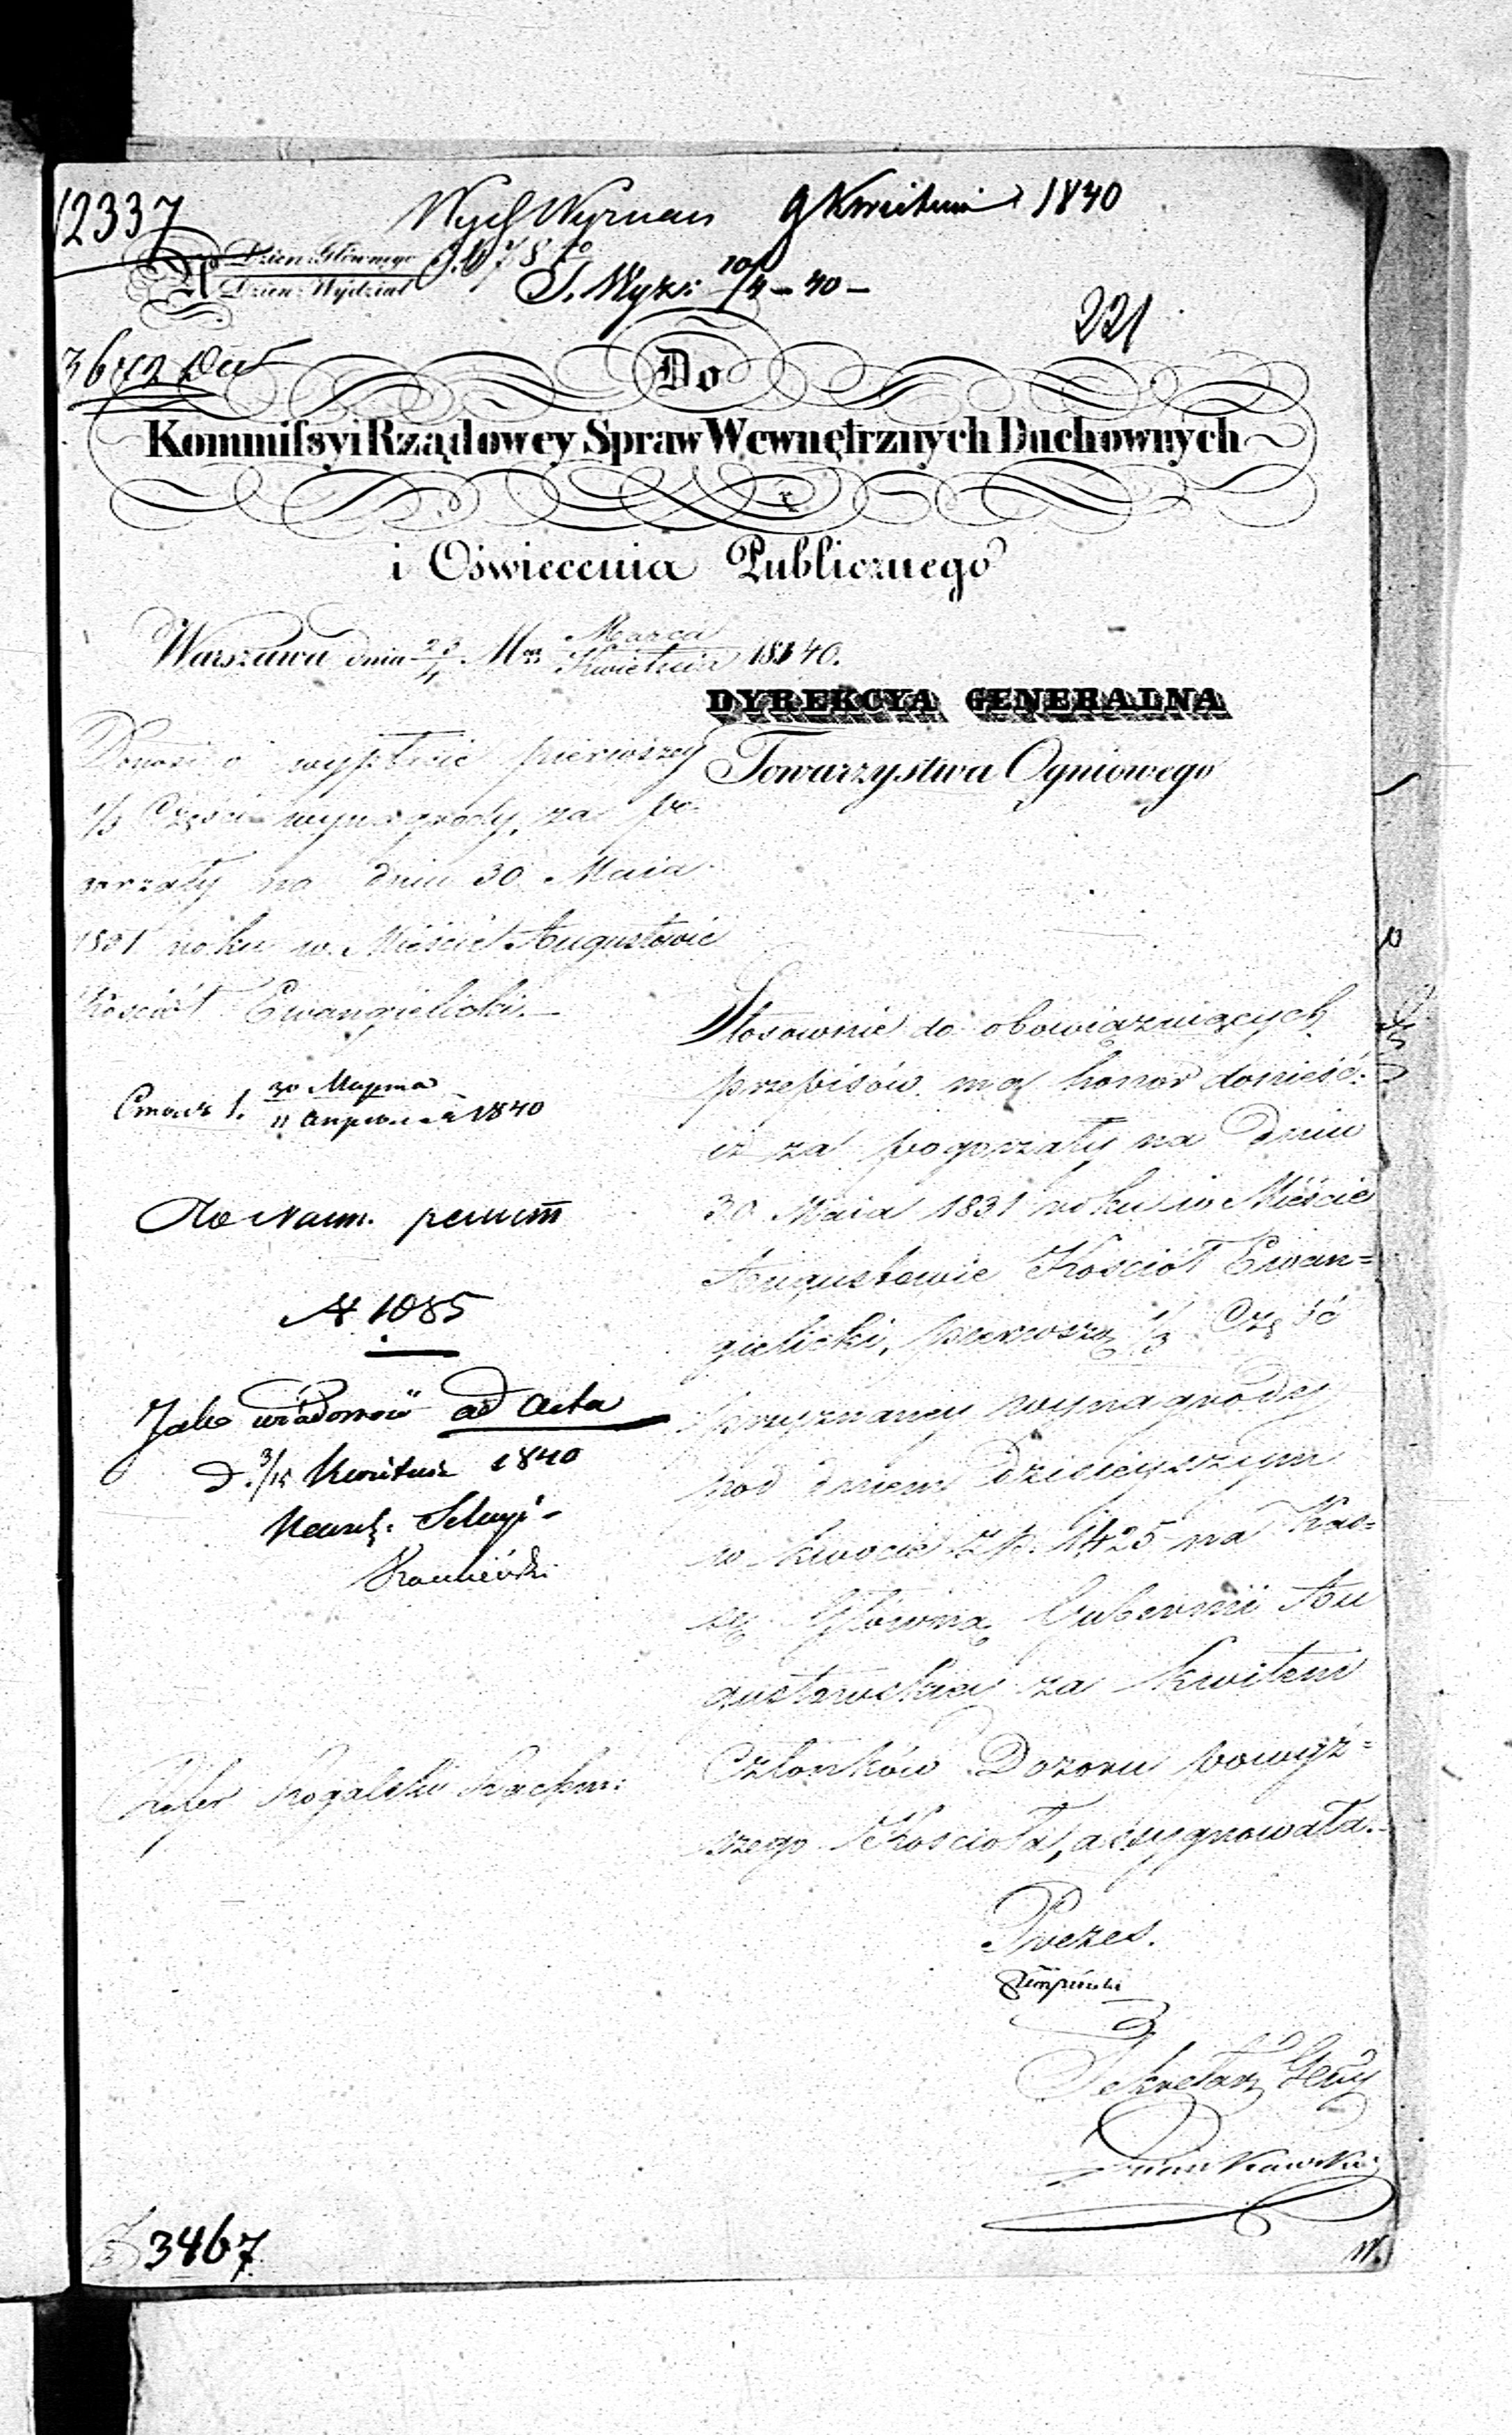 12337
Wych Wyznań 9 Kwietnia 1840
Dzien: Głównego
N
Dzien: Wydział
S. Wyzn: 10/4 - 40 -
221
Do
Kommissyi Rządowey Spraw Wewnętrznych Duchownych
i Oświecenia Publicznego
Warszawa dnia 23/4 Mca Marca/Kwietnia 1840.
DYREKCYA GENERALNA
Towarzystwa Ogniowego
Donosi o wypłacie pierwszey
1/3 Części wynagrody, za po-
gorzały na dniu 30 Maia
1831 roku w Mieście Augustowie
Kościół Ewangielicki.
30 Марта
11 Апреля 1840
N 1085
Jako wiadomość ad acta
d. 3/15 Kwietnia 1840
Refer Rogalski
Stosownie do obowiązuiących
przepisów ma honor donieść:
iż za pogorzały na dniu
30 Maia 1831 roku w Mieście
Augustowie Kościół Ewan=
gielicki, pierwszą 1/3 Część
przyznaney wynagrody
pod dniem dzisieyszym
w kwocie Złp. 1425 na Kas=
sę Główną Gubernii Au
gustowskiey za kwitem
Członków Dozoru powyż=
szego Kościoła, assygnowała.
Prezes.
Sekretarz Gen̄y
33467